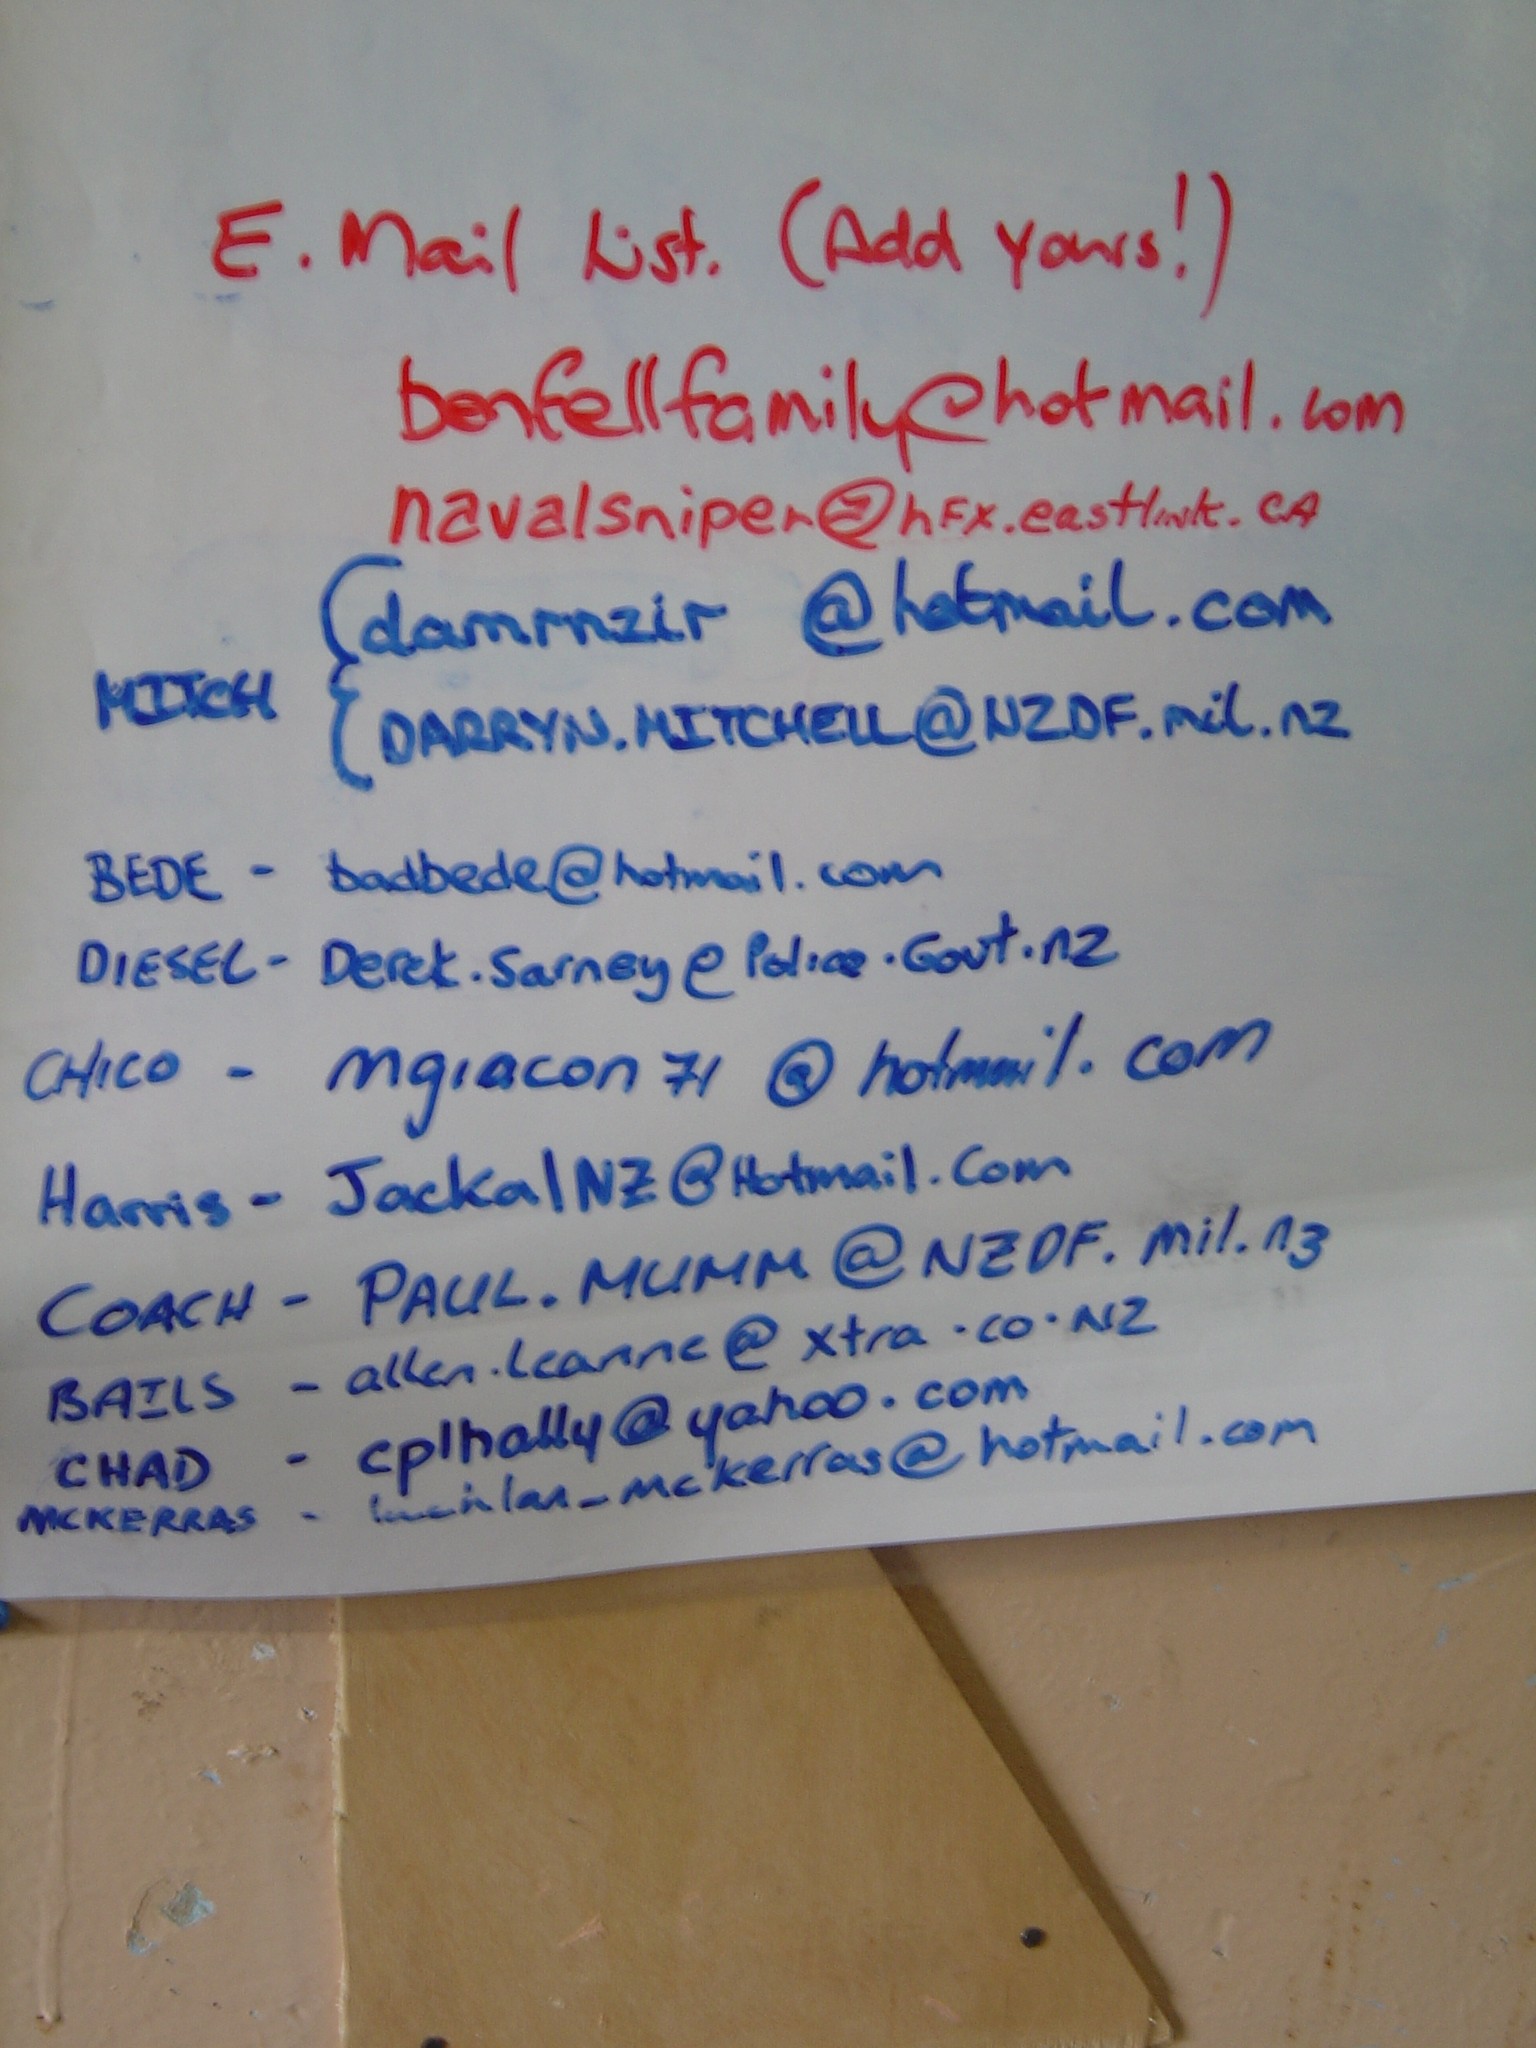 E.Mail List. (Add yours!)
benfellfamily@hotmail.com
navalsniper@hfx.eastlink.ca
damrnzir @hotmail.com
MITCH
DARRYN.MITCHELL@NZDF.mil.nz
BEDE - badbede@hotmail.com
DIESEL - Derek.Sarney@Police.Govt.nz
CHICO - mgiacon71 @ hotmail.com
Harris - JackalNZ@Hotmail.Com
COACH - PAUL.MUMM@NZDF.mil.nz
BAILS - allen.leanne@xtra.co.NZ
CHAD - cplhally@yahoo.com
MCKERRAS - lachlan_mckerras@hotmail.com